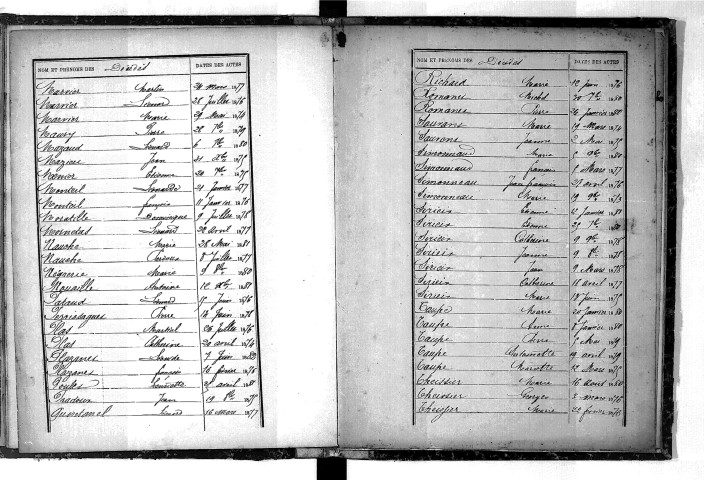 NOM ET PRÉNOMS DES Décédés DATES DES ACTES
Marvier Martin 24 mars 1877
Marvier Léonard 28 Juillet 1876
Marvier Marie 29 Mai 1874
Maury Pierre 28 7bre 1879
Mazaud Léonard 6 7bre 1880
Mazeau Jean 21 Xbre 1875
Menier Etienne 20 9bre 1875
Monteil Léonarde 21 Janvier 1877
Monteil françois 11 Janvier 1876
Moratille Dominique 9 Juillet 1876
Moreindas Léonard 28 Avril 1877
Nauche Marie 28 Mai 1881
Nauche Pardoux 8 Juillet 1877
Négrerie Marie 9 8bre 1880
Nouaille Antoine 12 Xbre 1881
Pataud Léonard 17 Juin 1876
Pierre 14 Juin 1878
Plas Martial 26 Juillet 1876
Plas Catherine 20 avril 1874
Plazanes 7 Juin 1880
Plazanes françois 16 février 1878
avril 1881
Pradoux Jean 19 8bre 1875
Queintanel 16 Mars 1877
NOM ET PRÉNOMS DES Décédés DATES DES ACTES
Richard Marie 12 Juin 1876
Romanes Michel 20 7bre 1880
Romanes Pierre 26 Janvier 1880
Saurans Marie 19 Mars 1874
Saurons Jeanne 2 Mai 1875
Simonnaud Marie Xbre 1880
Simonnaud françois 8 Mars 1877
Simonneau Jean françois 21 avril 1876
Simonneau Marie 19 9bre 1873
Sirieix 12 Janvier 1881
Sirieix Etienne 29 7bre 1880
Sirieix Catherine 9 9bre 1878
Sirieix Jeanne 9 8bre 1878
Sirieix Jean 9 Mars 1878
Sirieix Catherine 18 avril 1877
Sirieix Marie 18 Juin 1875
Taupe Marie 20 Janvier 1880
Taupe Anne 8 Janvier 1880
Taupe Pierre 5 Mai 1879
Taupe Antoinette 19 avril 1879
Taupe Mariette 12 Mars 1875
Theissier Marie 16 Avril 1880
Theissier Georges 8 mars 1876
Theyssier Marie 22 février 1875